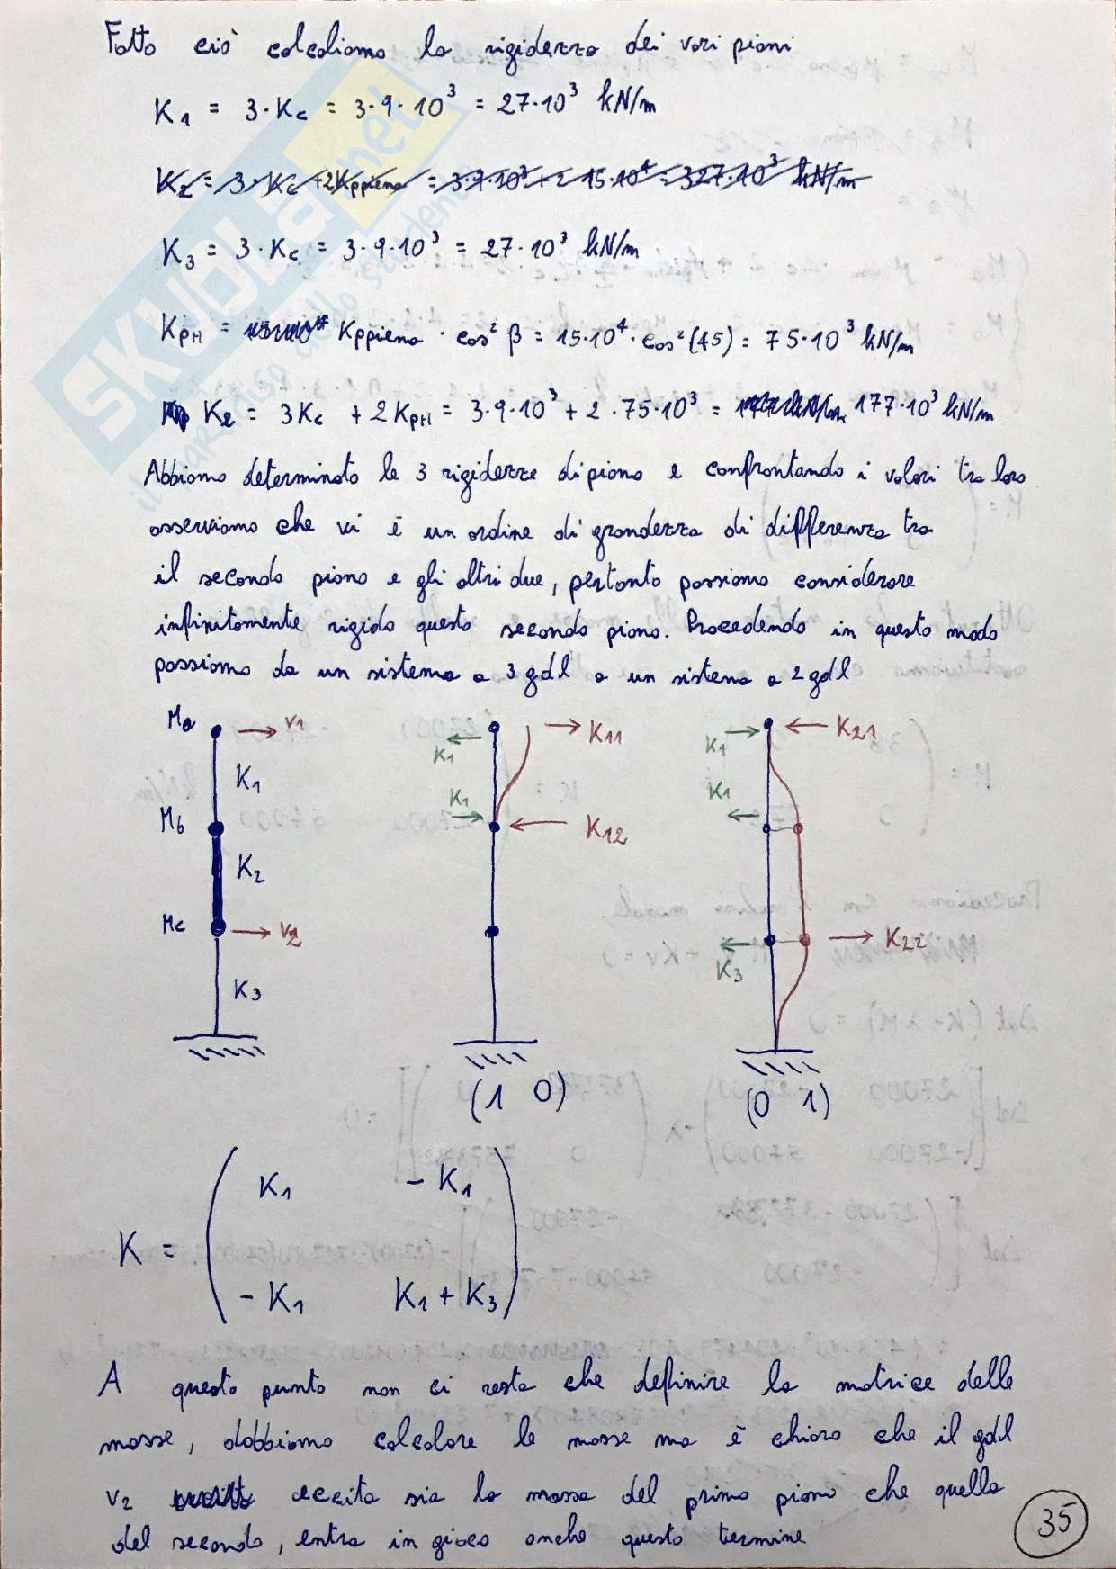 Fatto ciò calcoliamo la rigidezza dei vari piani
K1 = 3·Kc = 3·9·10³ = 27·10³ kN/m
K2 = 3·Kc + 2Kppieno = 3·9·10³ + 2·15·10⁴ = 327·10³ kN/m
K3 = 3·Kc = 3·9·10³ = 27·10³ kN/m
KpH = Kppieno · cos² β = 15·10⁴ · cos²(45) = 75·10³ kN/m
K2 = 3Kc + 2KpH = 3·9·10³ + 2·75·10³ = 177·10³ kN/m
Abbiamo determinato le 3 rigidezze di piano e confrontando i valori tra loro
osserviamo che vi è un ordine di grandezza di differenza tra
il secondo piano e gli altri due, pertanto possiamo considerare
infinitamente rigido questo secondo piano. Procedendo in questo modo
passiamo da un sistema a 3 gdl a un sistema a 2 gdl
Ma v1 K1 K11 K1 K21
K1 K1 K1
Mb K12
K2
Mc v2 K22
K3 K3
(1 0) (0 1)
K1 -K1
K =
-K1 K1 + K3
A questo punto non ci resta che definire la matrice delle
masse, dobbiamo calcolare le masse ma è chiaro che il gdl
v2 eccita sia la massa del primo piano che quella
del secondo, entra in gioco anche questo termine
35
SKUOLA.net